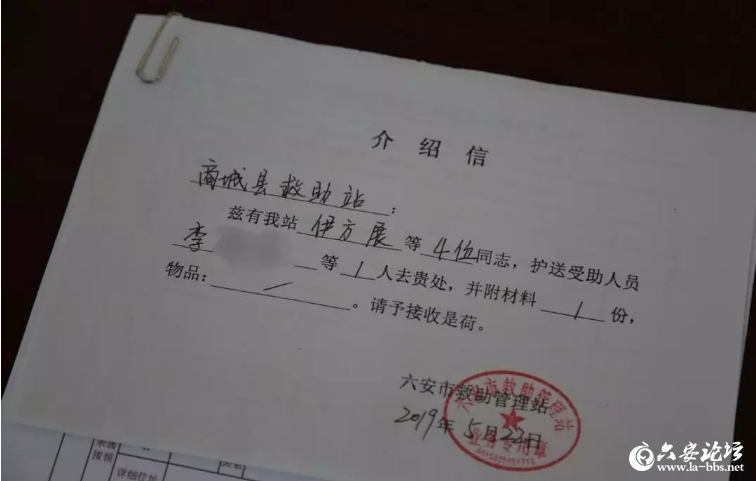 介绍信
商城县救助站：
兹有我站伊方展等4位同志，护送受助人员
李 等1人去贵处，并附材料1份，
物品：／。请予接收是荷。
六安市救助管理站
2019年5月22日
六安市救助管理站
业务专用章
接领
详细住址
六安论坛
www.la-bbs.net